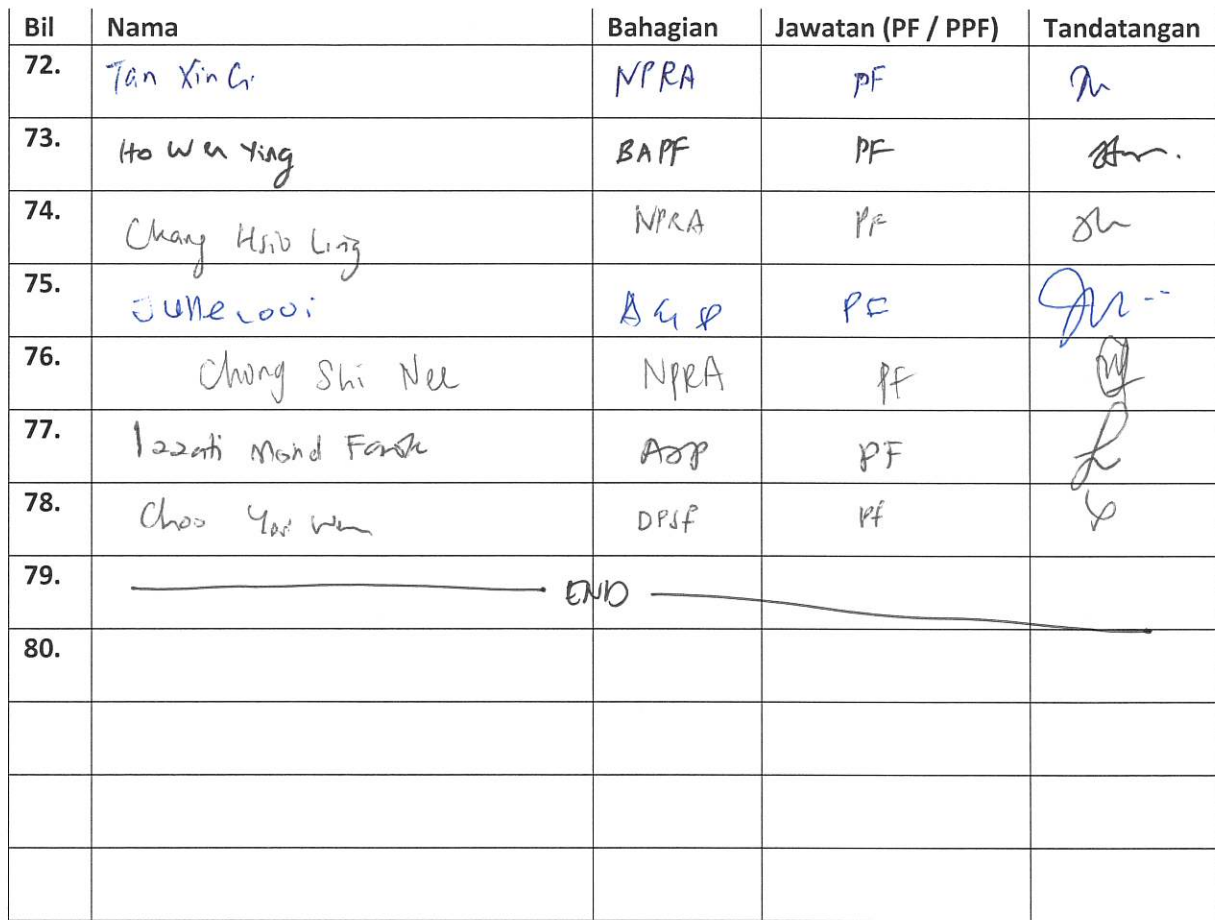 Bil Nama Bahagian Jawatan (PF / PPF) Tandatangan
72. Tan Xin Ci NPRA PF
73. Ho Wen Ying BAPF PF
74. Chang Hsio Ling NPRA PF
75. Julie Looi PF
76. Chong Shi Nee NPRA PF
77. Izzati Mohd PF
78. Choo DPSF PF
79. END
80.